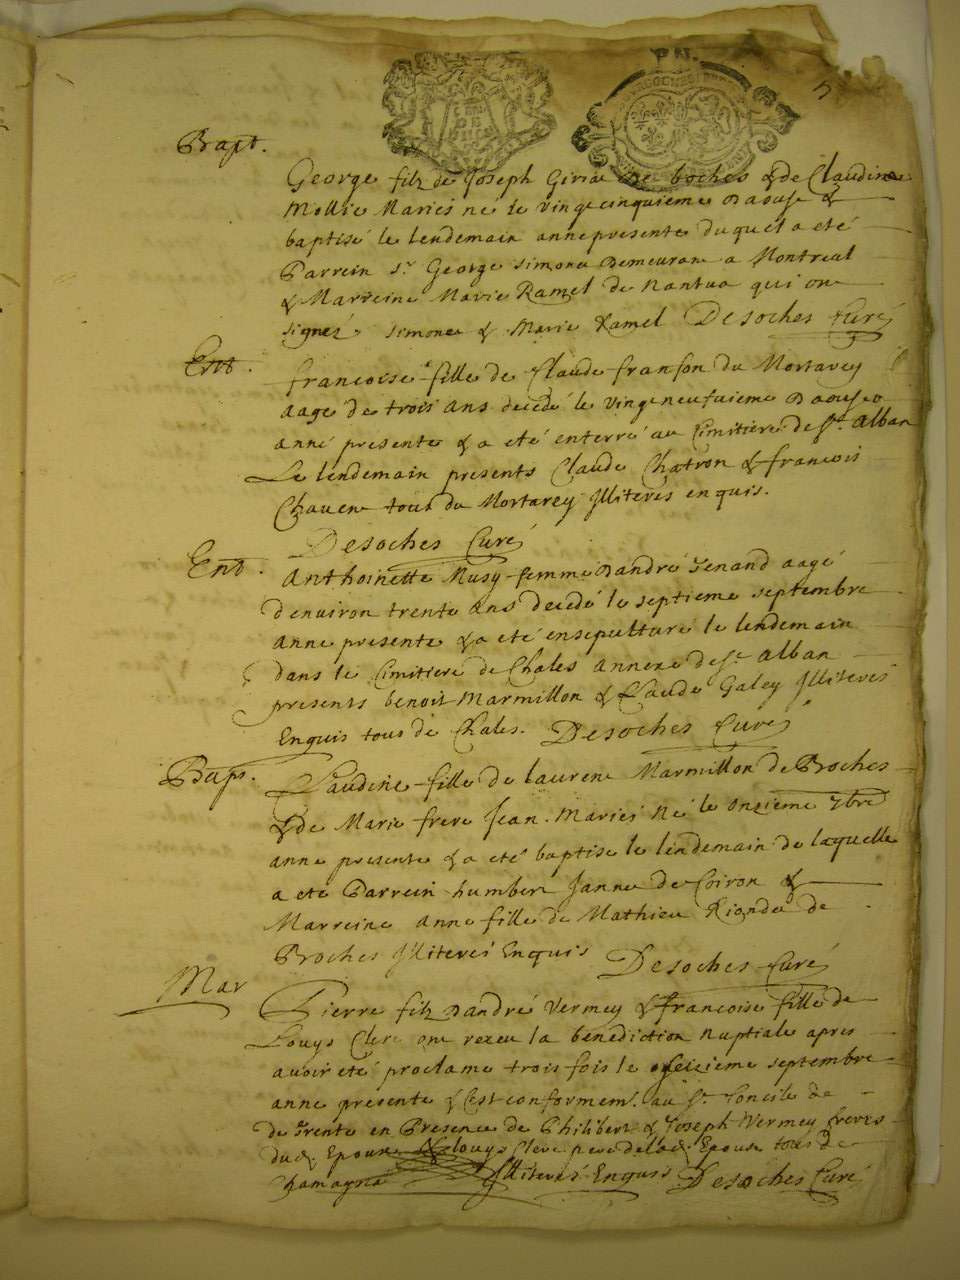 5
Bapt.
George filz de Joseph Girié de boches & de Claudine
Mollie Mariés né le vingtcinquieme Daoust &
baptisé le lendemain anne presente duquel a eté
Parrein sr. George Simone Demeurant a Montreal
& Marreine Marie Ramel de Nantua qui ont
signés. Simone & Marie Ramel Desoches Curé
Ent.
francoise fille de Claude franson du Mortarey
aage de trois ans decedé le vingtneufuieme Daoust
anné presente & a eté enterré au Cimitiere de St. Alban
Le lendemain presents Claude Chatron & francois
Chauen tous du Mortarey Illiterés enquis.
Desoches Curé
Ent.
Anthoinette Musy femme Dandré Jenand aagé
denuiron trente ans decedé le septieme septembre
anne presente & a eté ensepulturé le lendemain
dans le Cimitiere de Chales annexe de St Alban
presents benoit Marmillon & Claude Galey Illiterés
Enquis tous de Chales. Desoches Curé
Bapt.
Claudine fille de laurent Marmillon de Broches
& de Marie frere Jean. Mariés Né le onzieme 7bre
anne presente & a eté baptise le lendemain de laquelle
a eté Parrein humbert Janne de Coiron &
Marreine anne fille de Mathieu Riondet de
Broches Illiterés Enquis Desoches Curé
Mar
Pierre filz Dandré Vermey & francoise fille de
Louys Clerc ont receu la benediction nuptiale apres
auoir eté proclame trois fois le seizieme septembre
anne presente & cest conformemt. au St. Concile de
de Trente en Presence de Philibert & Joseph Vermey freres
dud. Epoux & louys Clerc pere de lad. Epouse tous de
Chamagna Illiterés Enquis Desoches Curé